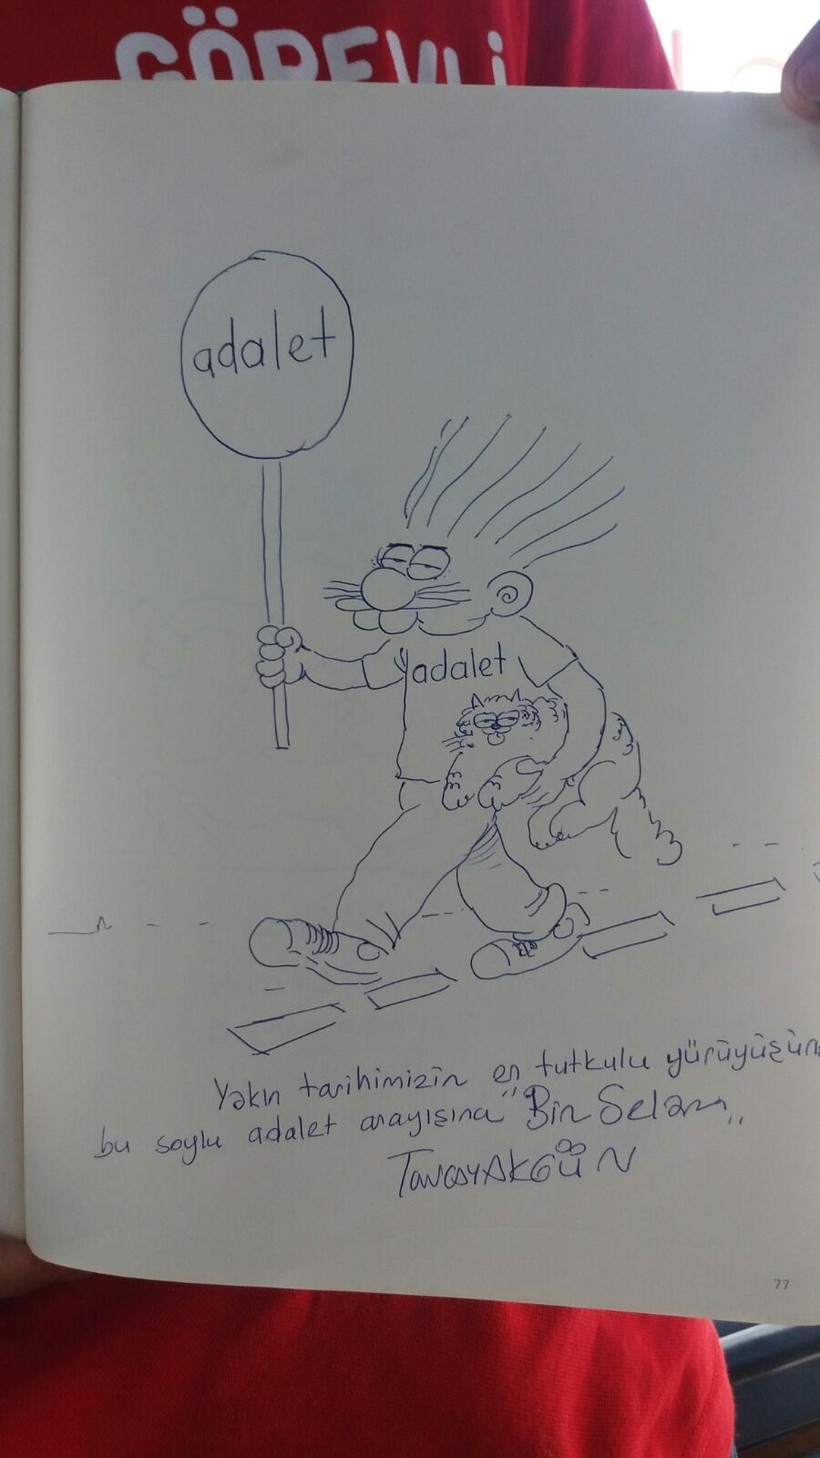 GÖREVLİ
adalet
adalet
Yakın tarihimizin en tutkulu yürüyüşün
bu soylu adalet arayışına "Bin Selam"
Tancay AKGÜN
77